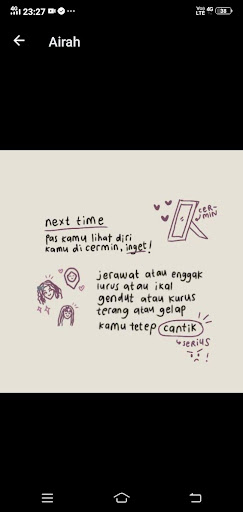 4G 23:27
Voo LTE 4G
Airah
CER-
MIN
next time
pas kamu lihat diri
kamu di cermin, inget!
jerawat atau enggak
lurus atau ikal
gendut atau kurus
terang atau gelap
kamu tetep cantik
serius
!